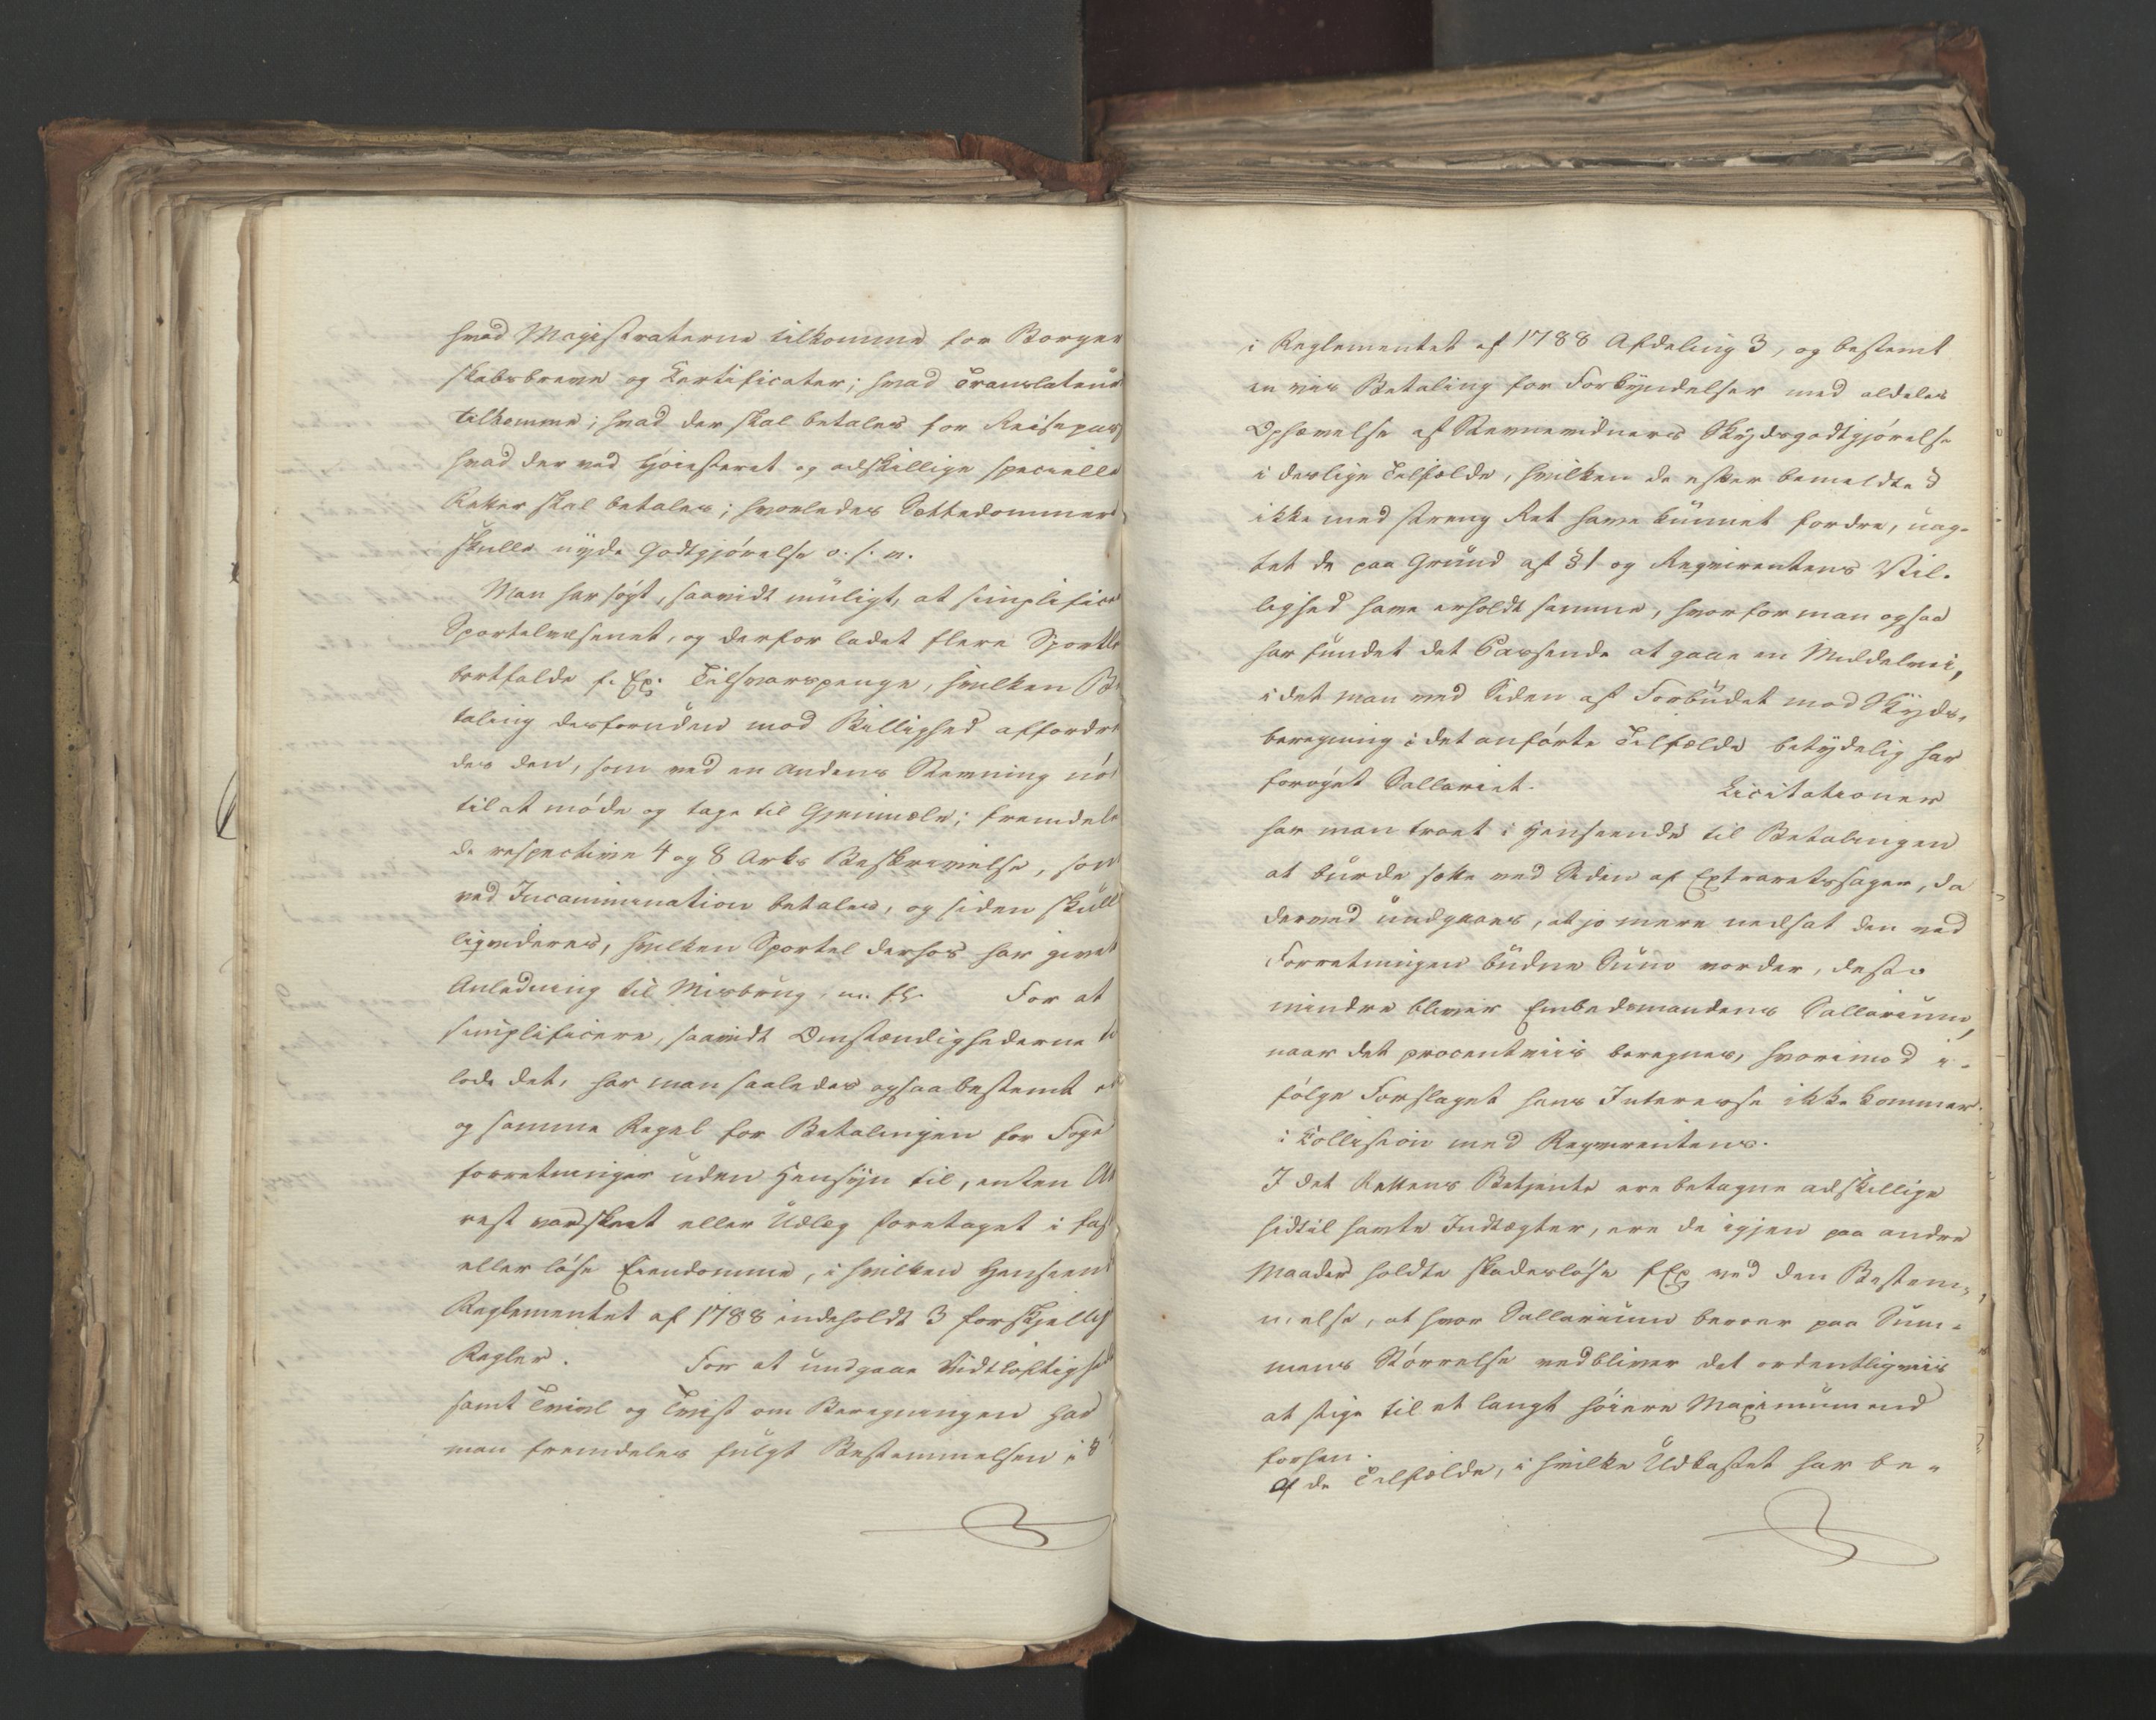 hvad Magistraterne tilkomme for Borger
skabsbreve og Certificater; hvad Translateur
tilkomme; hvad der skal betales for Reisepas
hvad der ved Høiesteret og adskillige specielle
Retter skal betales; hvorledes Settedommer
skulle nyde Godtgjørelse o. s. v.
Man har søgt, saavidt muligt, at simplificer
Sportelvæsenet, og derfor ladet flere Sportle
bortfalde f. Ex: Tilsvarspenge, hvilken Be
taling desforuden mod Billighed affordre
des den, som ved en Andens Stevning nø
til at møde og tage til Gjenmæle; fremdele
de respective 4 og 8 Arks Beskrivelse, som
ved Incamination betales, og siden skull
liqvideres, hvilken Sportel derhos har givet
Anledning til Misbrug, m. fl. For at
simplificere, saavidt Omstændighederne til
lode det, har man saaledes ogsaa bestemt een
og samme Regel for Betalingen for Foged
forretninger uden Hensyn til, enten Ar
rest vorder skeet eller Udlæg foretaget i fast
eller løse Eiendomme, i hvilken Henseend
Reglementet af 1788 indeholdt 3 forskjellig
Regler. For at undgaae Vidtløftighed
samt Tvivl og Tvist om Beregningen har
man fremdeles fulgt Bestemmelsen i §
i Reglementet af 1788 Afdeling 3, og bestemt
en vis Betaling for Forkyndelser med aldeles
Ophævelse af Stevnevidners Skydsgodtgjørelse
i deslige Tilfælde, hvilken de efter bemeldte §
ikke med streng Ret have kunnet fordre, uag-
tet de paa Grund af § 1 og Reqvirentens Vil-
lighed have erholdt samme, hvorfor man ogsaa
har fundet det Passende at gaae en Middelvei,
i det man ved Siden af Forbudet mod Skyds-
beregning i det anførte Tilfælde betydelig har
forøget Sallariet. Licitationer
har man troet i Henseende til Betalingen
at burde sette ved Siden af Extraretssager, da
derved undgaaes, at jo mere nedsat den ved
Forretningen budne Sum vorder, desto
mindre bliver Embedsmandens Sallarium,
naar det procentviis beregnes, hvorimod i-
følge Forslaget hans Interesse ikke kommer
i Collision med Reqvirentens.
I det Rettens Betjente ere betagne adskillige
hidtil havte Indtægter, ere de igjen paa andre
Maader holdte skadesløse f Ex ved den Bestem-
melse, at hvor Sallarium beroer paa Sum-
mens Størrelse vedbliver det ordentligviis
at stige til et langt høiere Maximum end
forhen.
Af de Tilfælde, i hvilke Udkastet har be-